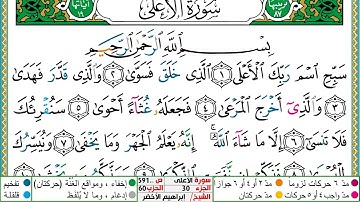 سُورَةُ الأَعْلَى
بِسْمِ اللَّهِ الرَّحْمَٰنِ الرَّحِيمِ
سَبِّحِ اسْمَ رَبِّكَ الْأَعْلَى ١ الَّذِي خَلَقَ فَسَوَّىٰ ٢ وَالَّذِي قَدَّرَ فَهَدَىٰ
٣ وَالَّذِي أَخْرَجَ الْمَرْعَىٰ ٤ فَجَعَلَهُ غُثَاءً أَحْوَىٰ ٥ سَنُقْرِئُكَ
فَلَا تَنسَىٰ ٦ إِلَّا مَا شَاءَ اللَّهُ ۚ إِنَّهُ يَعْلَمُ الْجَهْرَ وَمَا يَخْفَىٰ ٧ وَنُيَسِّرُكَ
سورة الأعلى ص 591
الجزء 30 الحزب 60
الشيخ/ إبراهيم الأخضر
مد ٦ حركات لزوماً مد ٢ أو ٤ أو ٦ جوازاً
مد واجب ٤ أو ٥ حركات مد حركتان
إخفاء، ومواقع الغنة (حركتان)
إدغام، وما لا يلفظ
تفخيم
قلقلة